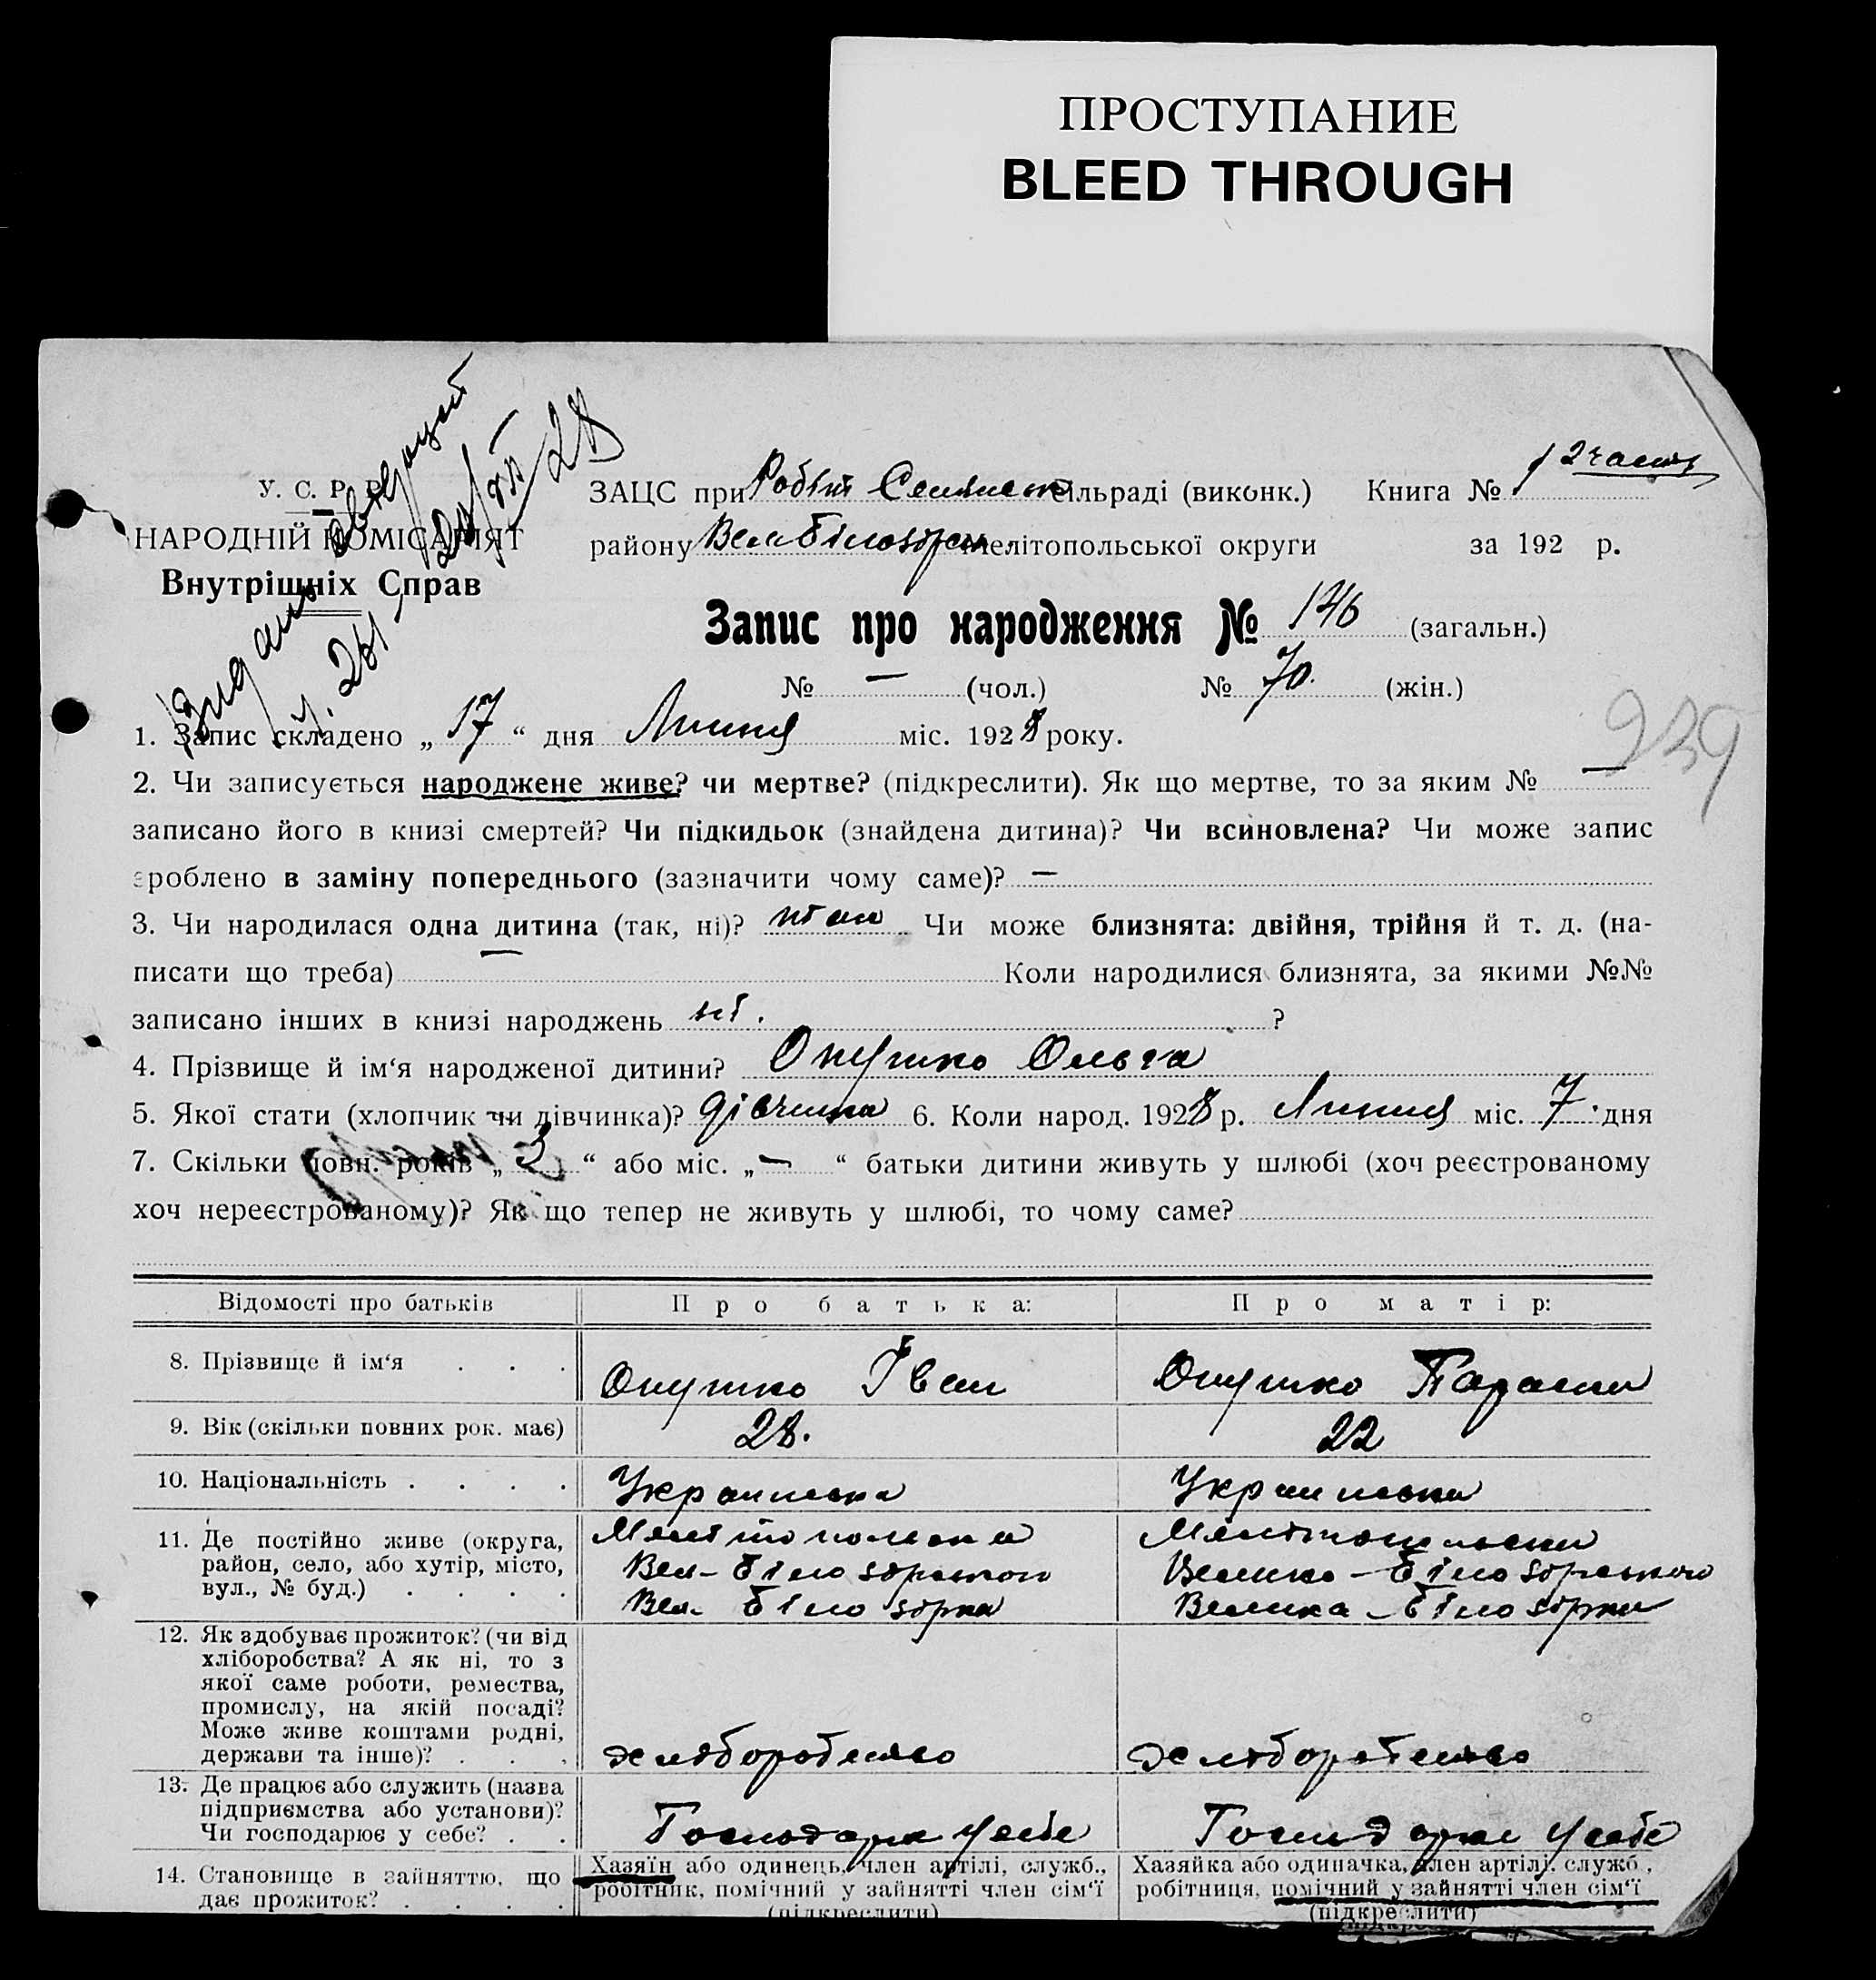 ПРОСТУПАНИЕ
BLEED THROUGH
У. С. Р. Р.
НАРОДНІЙ КОМІСАРІЯТ
Внутрішніх Справ
ЗАЦС при сільраді (виконк.) Книга № 1 2 част
району Вел Білозірськ Мелітопольської округи за 192 р.
Запис про народження № 146 (загальн.)
№ — (чол.) № 70. (жін.)
1. Запис складено „ 17 “ дня Липня міс. 1928 року.
239
2. Чи записується народжене живе? чи мертве? (підкреслити). Як що мертве, то за яким № —
записано його в книзі смертей? Чи підкидьок (знайдена дитина)? Чи всиновлена? Чи може запис
зроблено в заміну попереднього (зазначити чому саме)? —
3. Чи народилася одна дитина (так, ні)? так Чи може близнята: двійня, трійня й т. д. (на-
писати що треба) — Коли народилися близнята, за якими №№
записано інших в книзі народжень ні. ?
4. Прізвище й ім‘я народженої дитини? Опушко Ольга
5. Якої стати (хлопчик чи дівчинка)? дівчина 6. Коли народ. 1928 р. Липня міс. 7. дня
7. Скільки повн. років „ 3 “ або міс. „ — “ батьки дитини живуть у шлюбі (хоч реєстрованому
хоч нереєстрованому)? Як що тепер не живуть у шлюбі, то чому саме?
Відомості про батьків Про батька: Про матір:
8. Прізвище й ім‘я . . . Опушко Іван Опушко Параска
9. Вік (скільки повних рок. має) 28. 22
10. Національність . . . . Українська Українська
11. Де постійно живе (округа, Мелітопольська Мелітопольська
район, село, або хутір, місто, Вел- Білозірського Велико - Білозірського
вул., № буд.) . . . . Вел- Білозірка Велика - Білозірка
12. Як здобуває прожиток? (чи від
хліборобства? А як ні, то з
якої саме роботи, ремества,
промислу, на якій посаді?
Може живе коштами родні,
держави та інше)? . . . хліборобство хліборобство
13. Де працює або служить (назва
підприємства або установи)?
Чи господарює у себе? . . Господарює у себе Господарює у себе
14. Становище в зайняттю, що Хазяїн або одинець, член артілі, служб., Хазяйка або одиначка, член артілі, служб.,
дає прожиток? . . . . робітник, помічний у зайнятті член сім‘ї робітниця, помічний у зайнятті член сім‘ї
(підкреслити) (підкреслити)